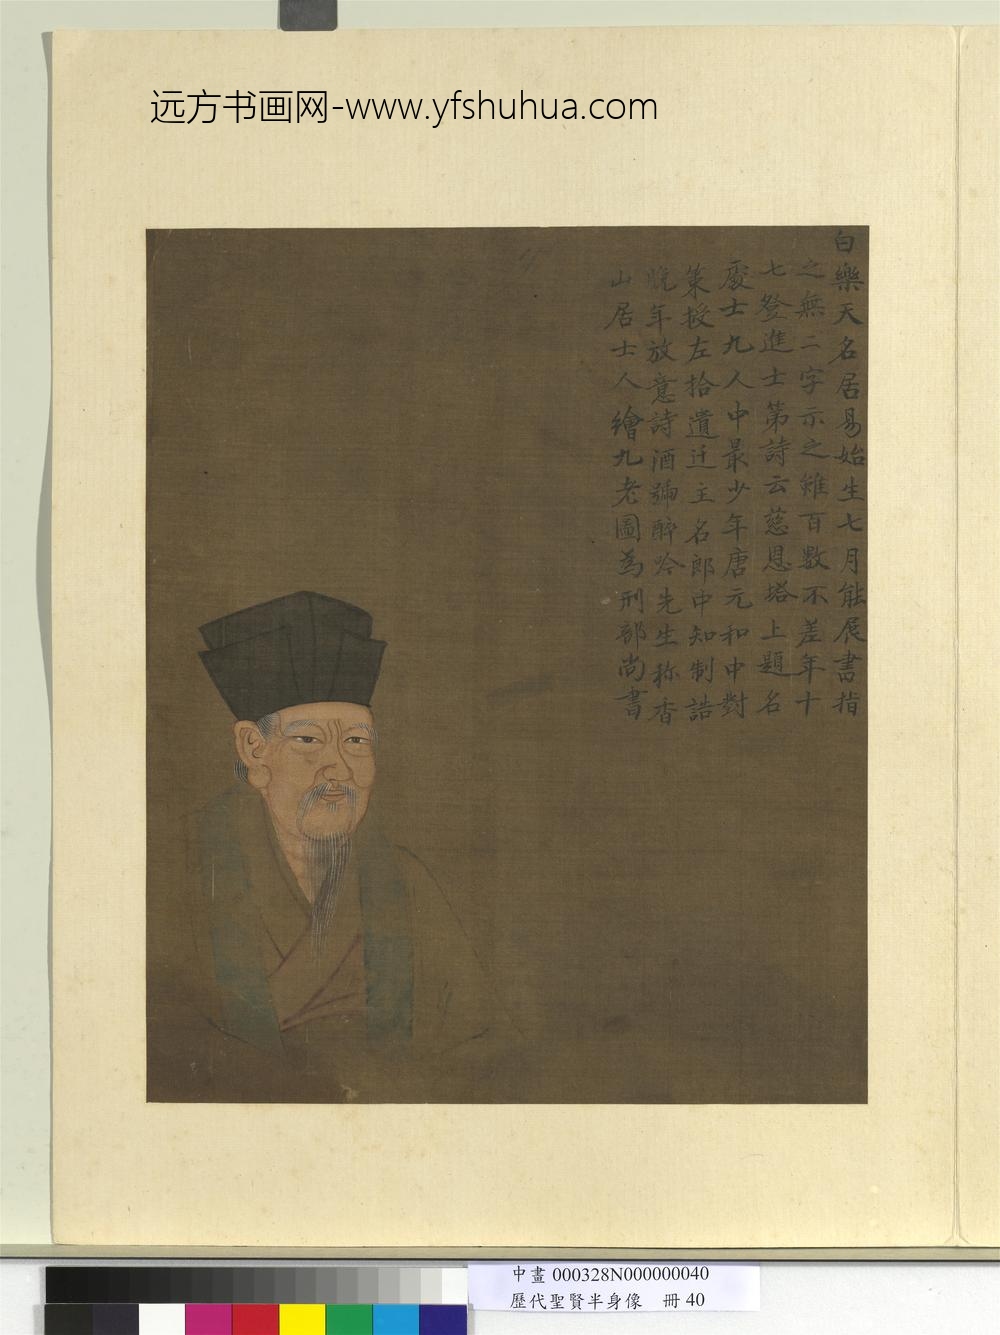 远方书画网-www.yfshuhua.com
白樂天名居易始生七月能展書指
之無二字示之雖百數不差年十
七登進士第詩云慈恩塔上題名
處士九人中最少年唐元和中對
策授左拾遺迁主名郎中知制誥
晚年放意詩酒號醉吟先生称香
山居士人繪九老圖為刑部尚書
中畫 000328N000000040
歷代聖賢半身像 冊 40